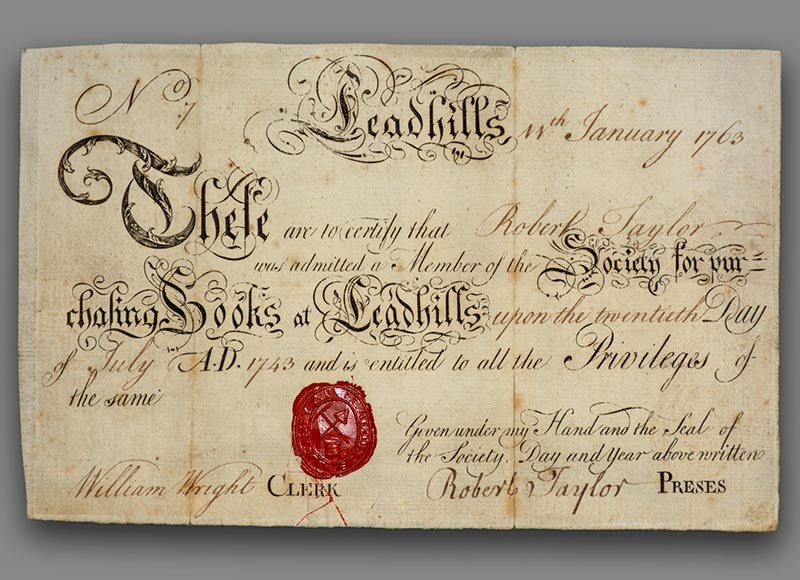 No 7
Leadhills 11th January 1763
These are to certify that Robert Taylor
was admitted a Member of the Society for pur=
chasing Books at Leadhills upon the twentieth Day
of July A.D. 1743 and is entitled to all the Privileges of
the same
Given under my Hand and the Seal of
the Society, Day and Year above written
William Wright CLERK Robert Taylor PRESES